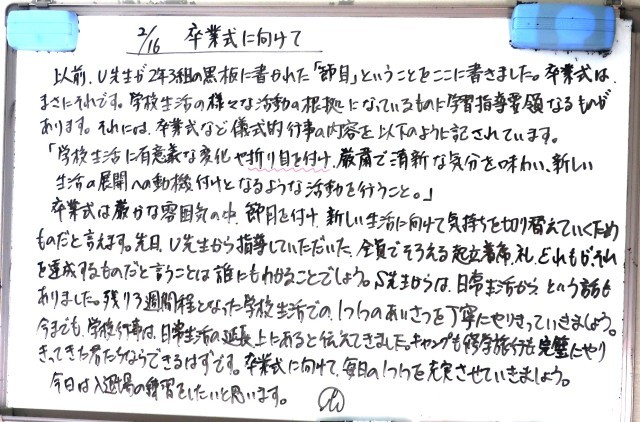 2/16 卒業式に向けて
以前、U先生が2年3組の黒板に書かれた「節目」ということをここに書きました。卒業式は、
まさにそれです。学校生活の様々な活動の根拠になっているものに学習指導要領なるものが
あります。それには、卒業式など儀式的行事の内容を以下のように記されています。
「学校生活に有意義な変化や折り目を付け、厳粛で清新な気分を味わい、新しい
生活の展開への動機付けとなるような活動を行うこと。」
卒業式は厳かな雰囲気の中、節目を付け、新しい生活に向けて気持ちを切り替えていくため
ものだと言えます。先日、U先生から指導していただいた、全員でそろえる起立、着席、礼、どれもが、それ
を達成するものだと言うことは誰にもわかることでしょう。S先生からは、日常生活から、という話も
ありました。残り3週間程となった学校生活での、1つ1つのあいさつを丁寧にやりきっていきましょう。
今までも、学校行事は、日常生活の延長上にあると伝えてきました。キャンプも修学旅行も完璧にやり
きってきた君たちならできるはずです。卒業式に向けて、毎日の1つ1つを充実させていきましょう。
今日は入退場の練習をしたいと思います。